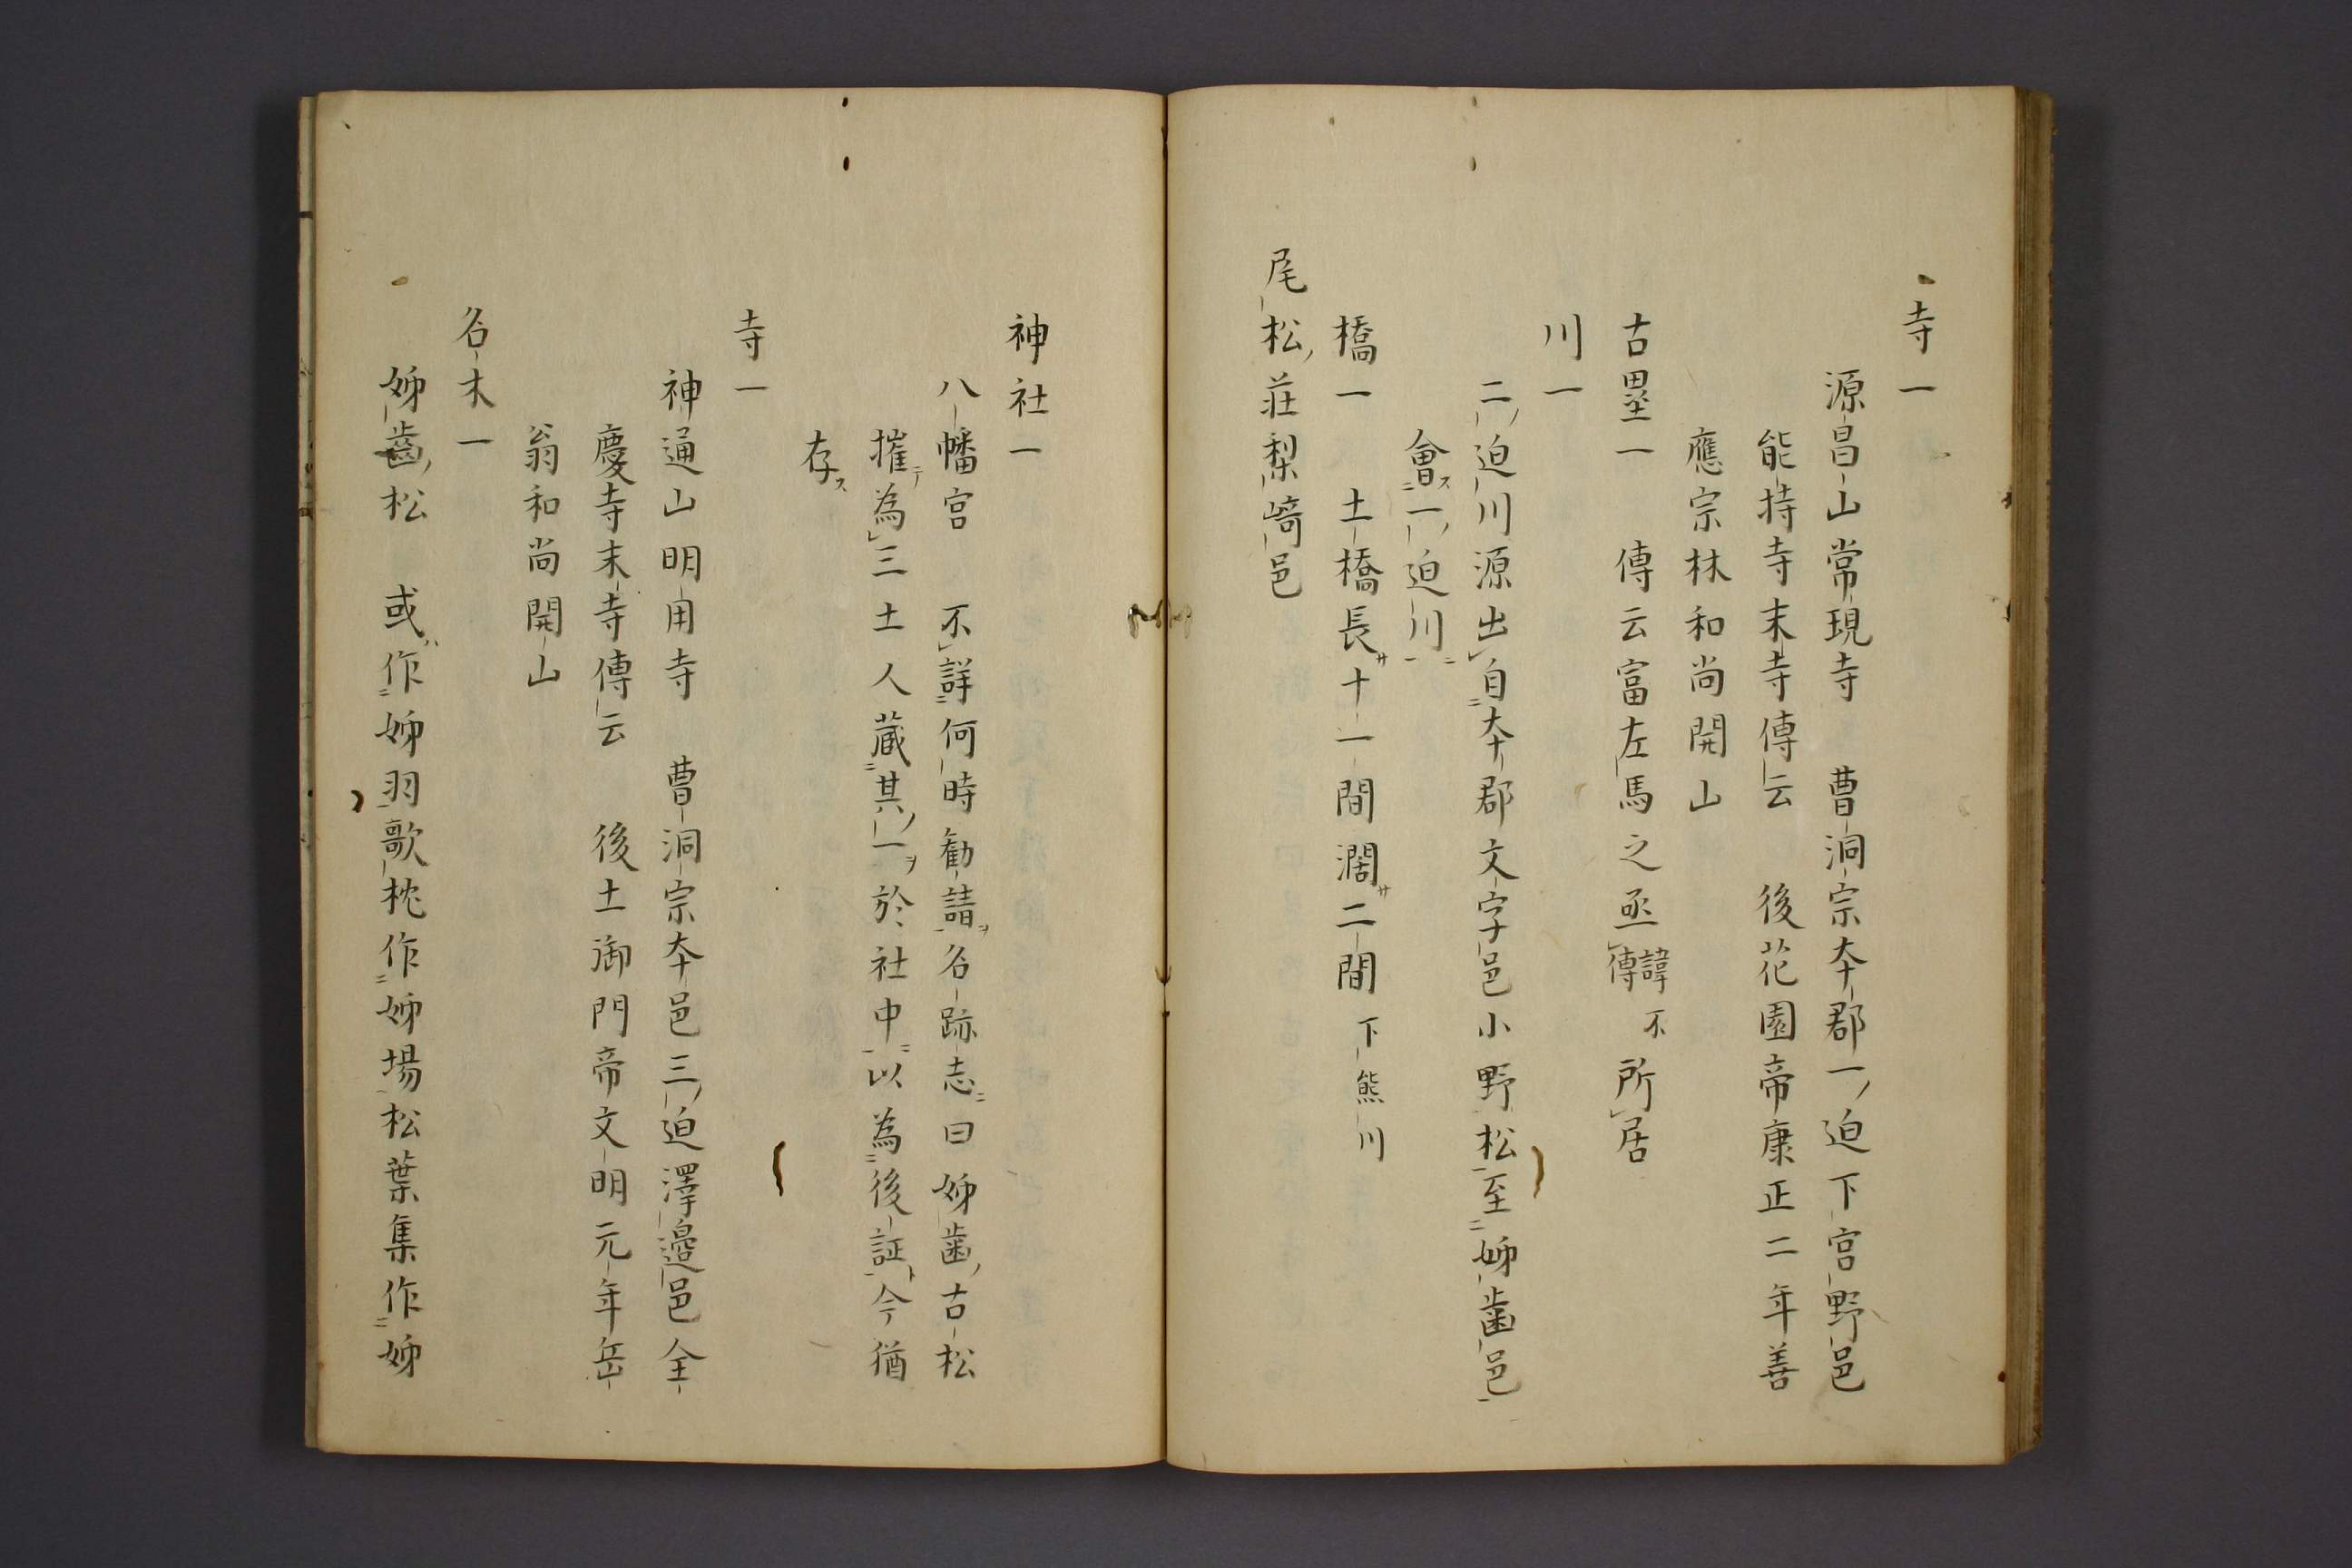 寺一
源昌山常現寺　曹洞宗本郡一ノ迫下宮野邑
能持寺末寺傳云　後花園帝康正二年善
應宗林和尚開山
古壘一　傳云富左馬之丞諱不傳所居
川一
二ノ迫川源出自本郡文字邑小野松至姉歯邑
會ス一ノ迫川ニ
橋一　土橋長サ十一間濶サ二間下熊川
尾松ノ荘梨崎邑
神社一
八幡宮　不詳何時勧請ヲ名跡志ニ曰姉歯ノ古松
摧テ為三土人蔵其ノ一ヲ於社中ニ以為後証ト今猶
存ス
寺一
神通山明用寺　曹洞宗本邑三ノ迫澤邉邑全
慶寺末寺傳云　後土御門帝文明元年岳
翁和尚開山
名木一
姉齒ノ松　或ハ作姉羽歌枕作姉場松葉集作姉